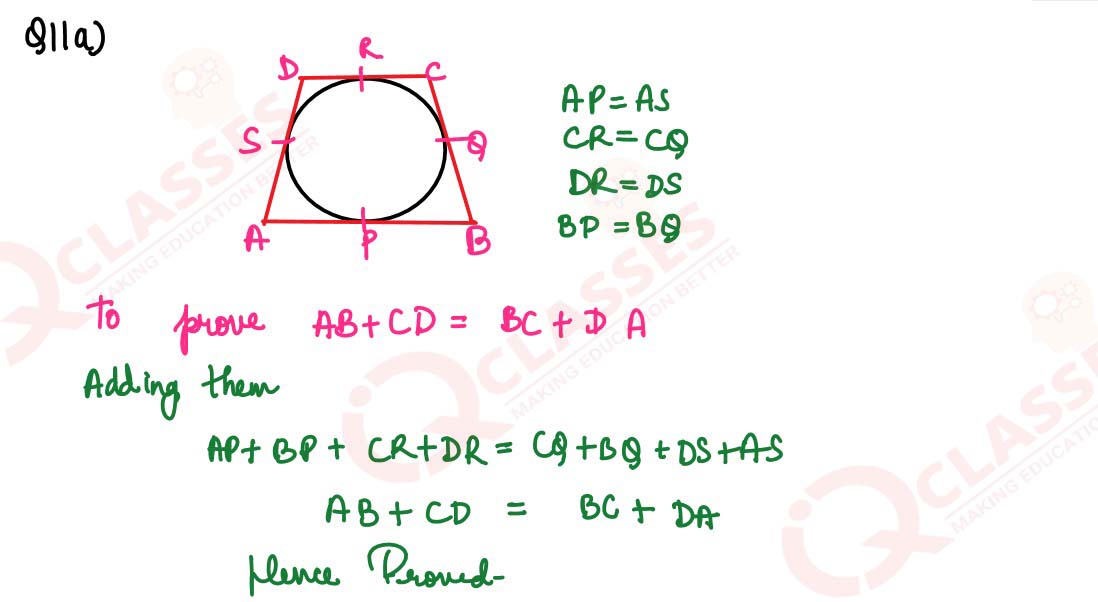 Q11a)
D R C
S Q
A P B
AP = AS
CR = CQ
DR = DS
BP = BQ
To prove AB + CD = BC + D A
Adding them
AP + BP + CR + DR = CQ + BQ + DS + AS
AB + CD = BC + DA
Hence Proved-
QCLASSES
MAKING EDUCATION BETTER
iQCLASSES
MAKING EDUCATION BETTER
iQCLASSES
MAKING EDUCATION